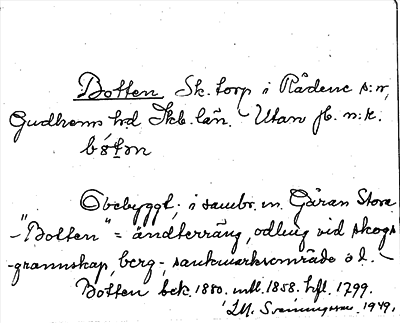 Botten Sk. torp i Rådene s:n,
Gudhems hd Skb. län. Utan jb. n:r.
bót̠n
Obebyggt; i sambr. m. Gåran Stora
- "Botten" = ändterräng, odling vid skogs
-grannskap, berg-, sankmarksområde o.d. -
Botten bek. 1880. mtl. 1858. hfl. 1799.
I.M. 1949.